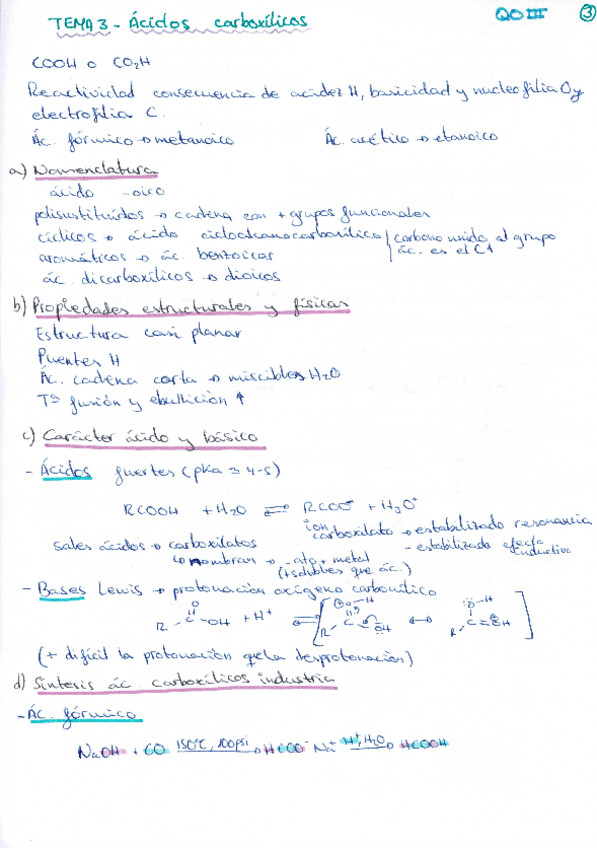 TEMA 3 - Ácidos carboxílicos QO III 3
COOH o CO₂H
Reactividad consecuencia de acidez H, basicidad y nucleofilia O y
electrofilia C.
Ác. fórmico → metanoico Ác. acético → etanoico
a) Nomenclatura
ácido -oico
polisustituídos → cadena con + grupos funcionales
cíclicos → ácido cicloalcanocarboxílico / carbono unido al grupo
ác. es el C1
aromáticos → ác. benzoicos
ác. dicarboxílicos → dioicos
b) Propiedades estructurales y físicas
Estructura casi planar
Puentes H
Ác. cadena corta → miscibles H₂O
Tª fusión y ebullición ↑
c) Carácter ácido y básico
- Ácidos fuertes (pKa 4-5)
RCOOH + H₂O ⇌ RCOO⁻ + H₃O⁺
ion carboxilato → estabilizado resonancia
- estabilizado efecto inductivo
sales ácidos → carboxilatos
nombran → -ato + metal
(+ solubles que ác.)
- Bases Lewis → protonación oxígeno carbonílico
O
R - C - OH + H⁺ ⇌ [ O - H R - C OH ↔ O - H R - C = OH ]
(+ difícil la protonación que la desprotonación)
d) Síntesis ác. carboxílicos industria
- Ác. fórmico
NaOH + CO 150°C, 100psi → HCOO⁻ Na⁺ H⁺, H₂O → HCOOH